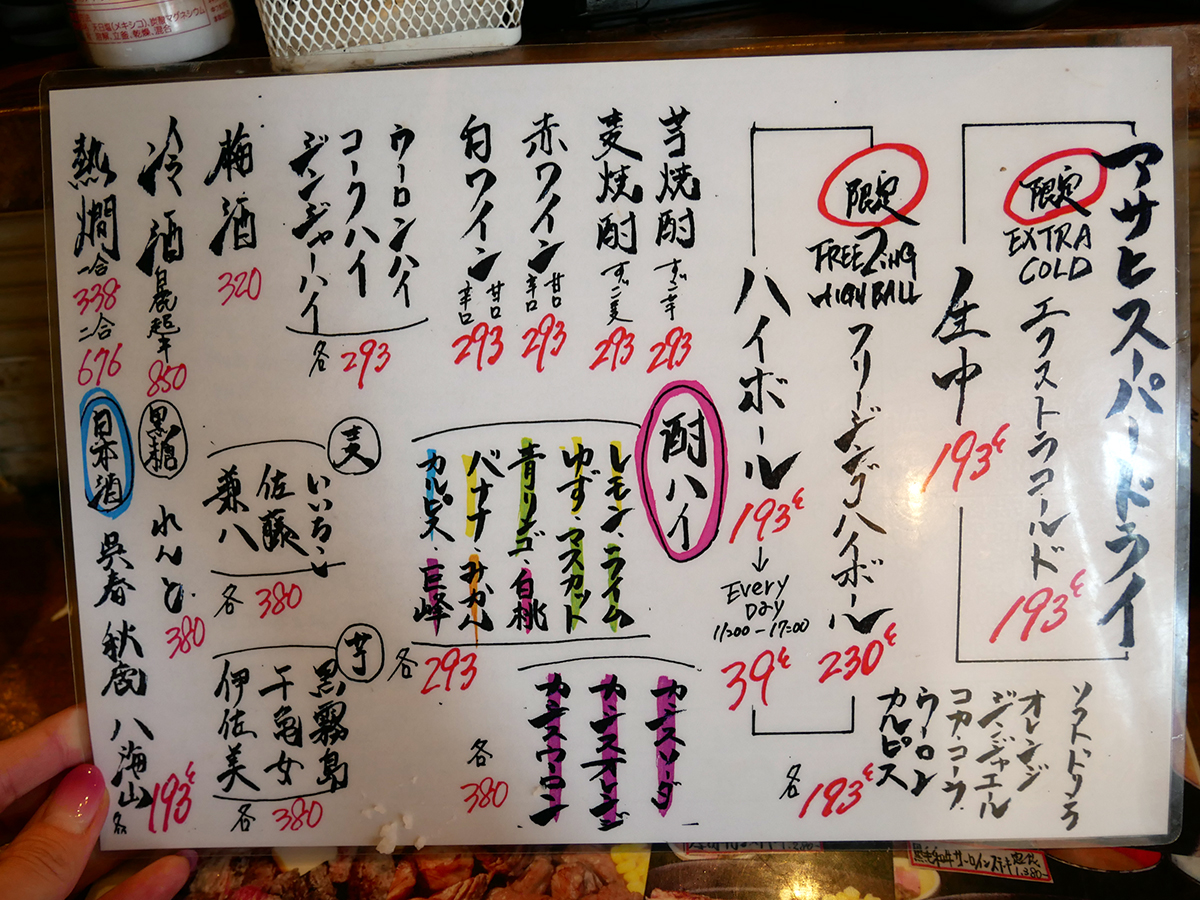 アサヒスーパードライ
限定
EXTRA
COLD
エクストラコールド
193
生中
193
限定
FREEZING
HIGHBALL
フリージングハイボール
230
ハイボール
193
Every
DAY
11:00-17:00
39
芋焼酎
293
麦焼酎
293
赤ワイン
甘口
辛口
293
白ワイン
甘口
辛口
293
ウーロンハイ
コークハイ
ジンジャーハイ
各293
梅酒
320
冷酒
850
熱燗
一合
338
二合
676
ソフトドリンク
オレンジ
ジンジャエル
コカコーラ
ウーロン
カルピス
各193
酎ハイ
レモン・ライム
ゆず・マスカット
青リンゴ・白桃
バナナ・みかん
カルピス・巨峰
各293
カシスソーダ
カシスオレンジ
カシスウーロン
各380
麦
いいちこ
佐藤
兼八
各380
芋
黒霧島
千亀女
伊佐美
各380
黒糖
れんと
380
日本酒
呉春 秋鹿 八海山
各193